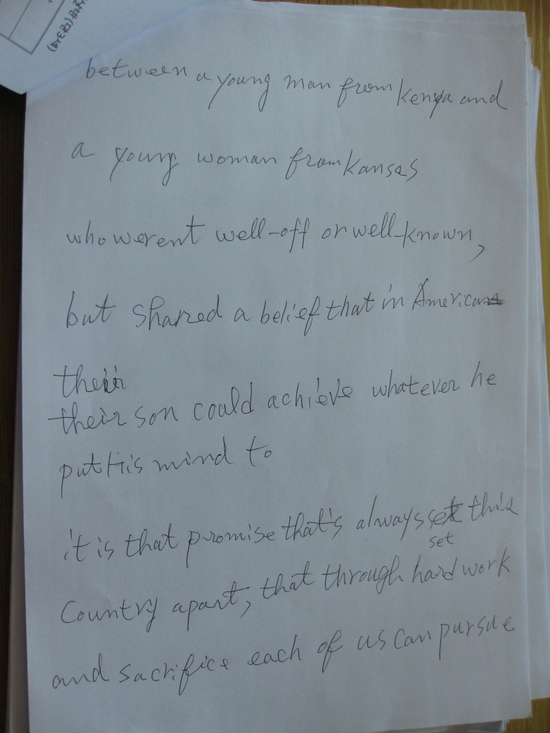 between a young man from Kenya and
a young woman from Kansas
who werent well-off or well-known,
but shared a belief that in America
their
their son could achieve whatever he
put His mind to
it is that promise that's always set this
set
Country apart, that through hard work
and sacrifice each of us can pursue